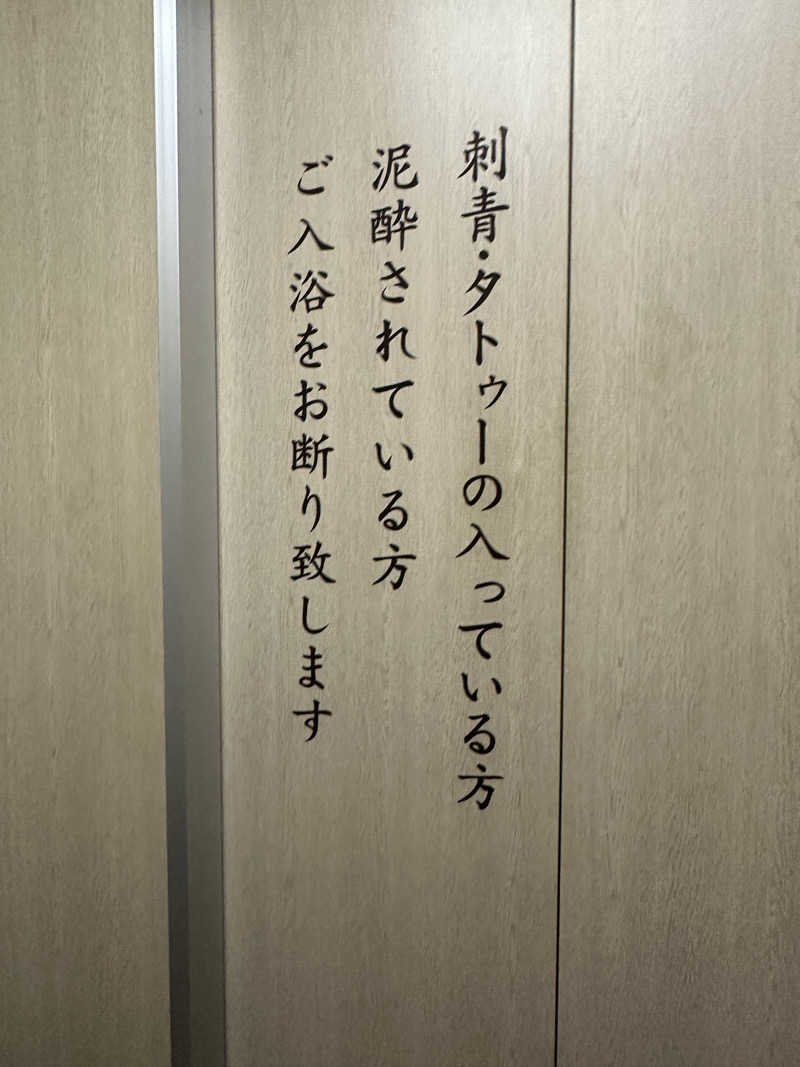 刺青・タトゥーの入っている方
泥酔されている方
ご入浴をお断り致します